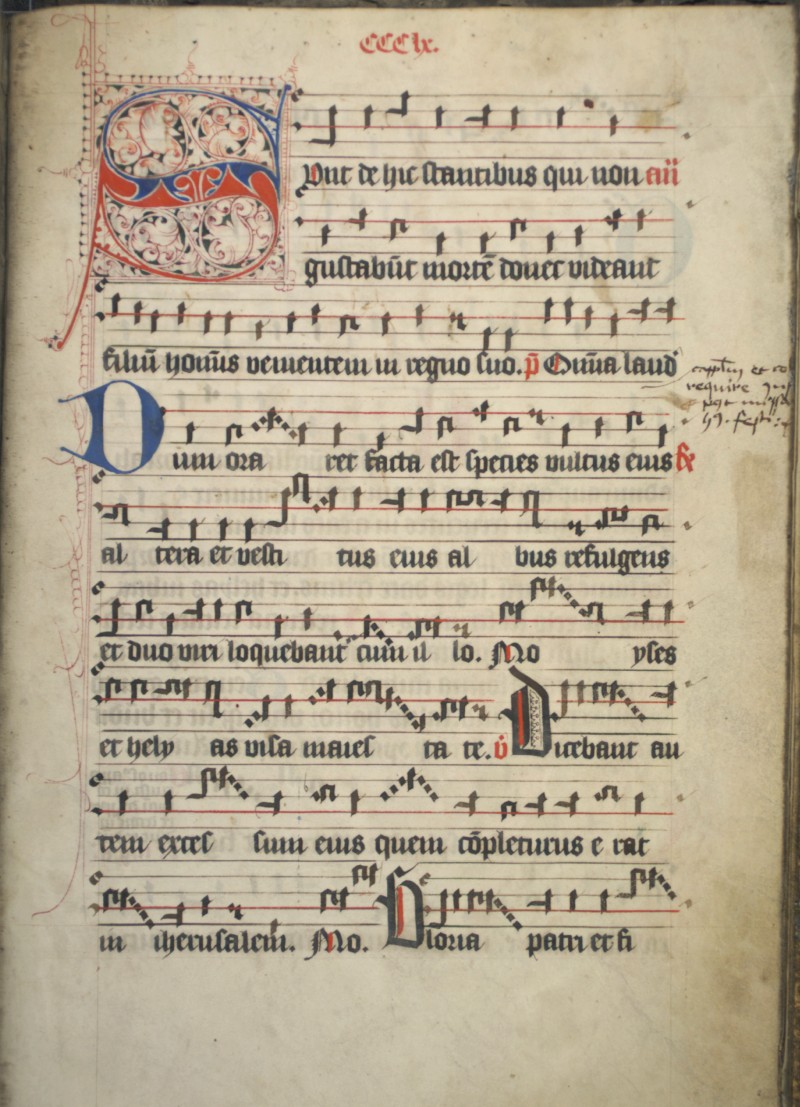 CCClx.
Sunt de hic stantibus qui non añ
gustabūt mortē donec videant
filiū homīs venientem in regno suo. p̄ Om̄ia laud
Dum ora ret facta est species vultus eius &
al tera et vesti tus eius al bus refulgens
et duo viri loquebant cum il lo. Mo yses
et hely as visa maies ta te. v̇ Dicebant au
tem exces sum eius quem cōpleturus e rat
in iherusalem. Mo. Gloria patri et fi
require